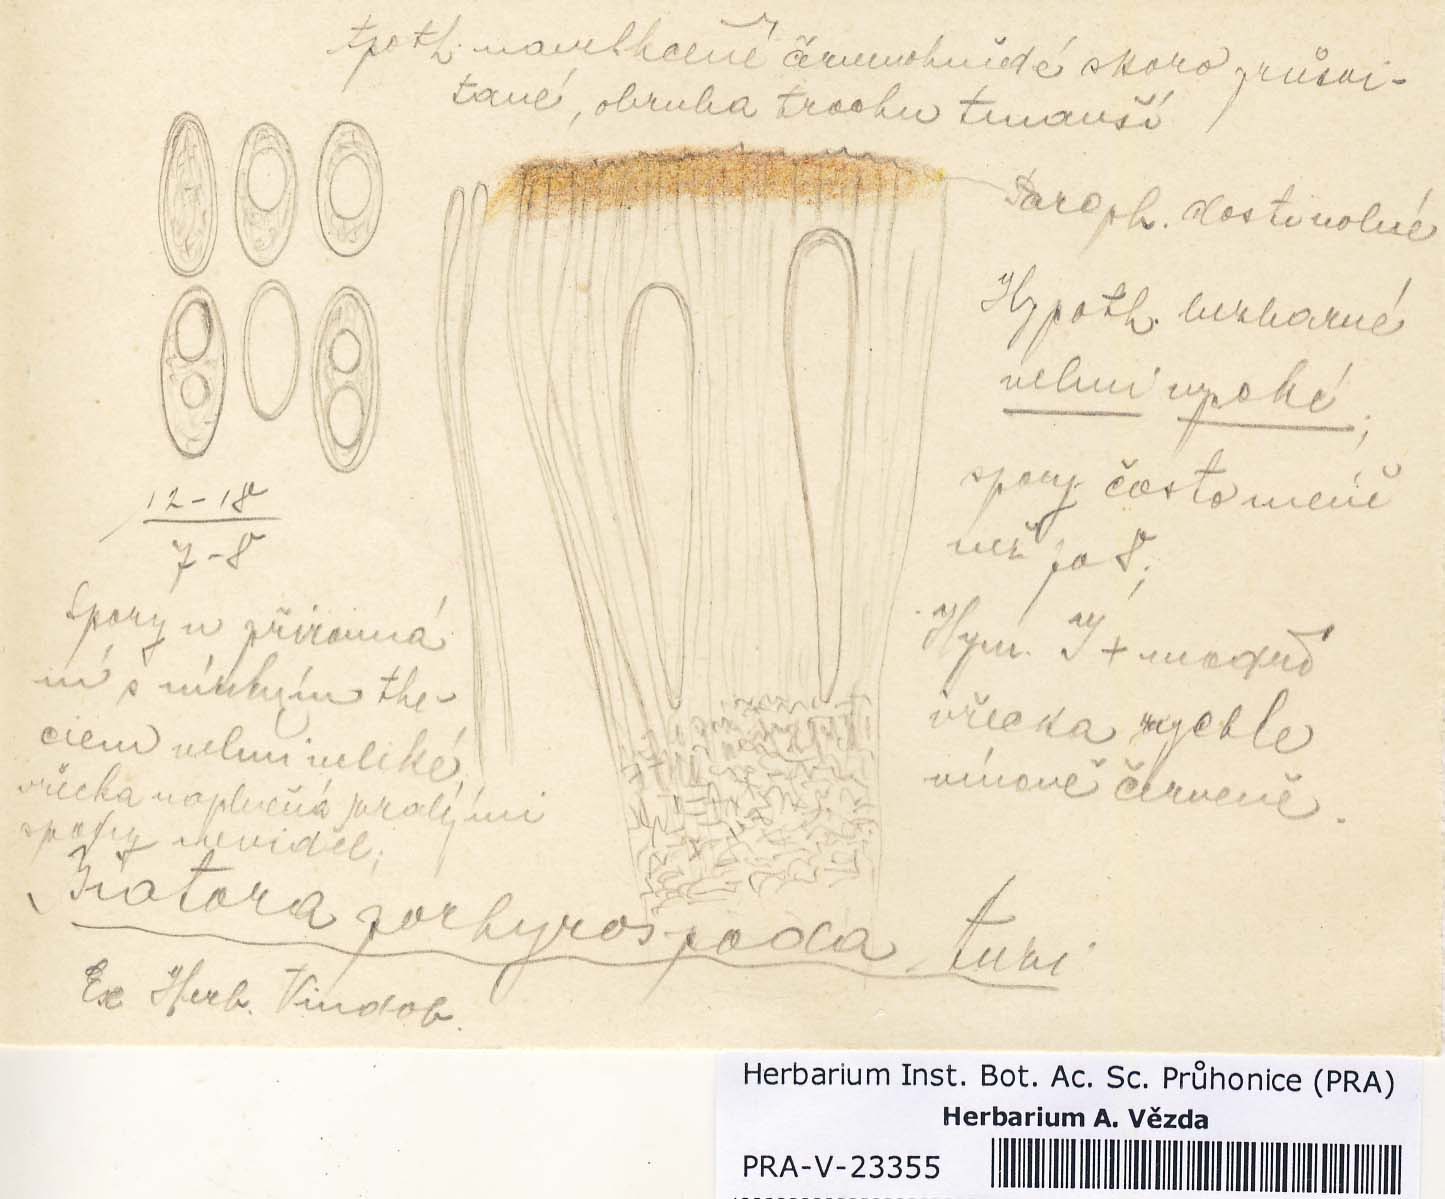 Apoth. navlhčené černohnědé skoro průsvi-
tané, obruba trochu tmavší
Paraph. dosti volné
Hypoth. bezbarné
velmi vysoké;
spory často méně
než po 8;
Hym. J + modrě
vřecka rychle
vínově červeně.
12-18
7-8
Spory v přirovná
ní s nízkým the-
ciem velmi veliké,
vřecka naplněná zralými
spory neviděl;
Biatora porhyrospoda Anzi
Ex Herb. Vindob.
Herbarium Inst. Bot. Ac. Sc. Průhonice (PRA)
Herbarium A. Vězda
PRA-V-23355